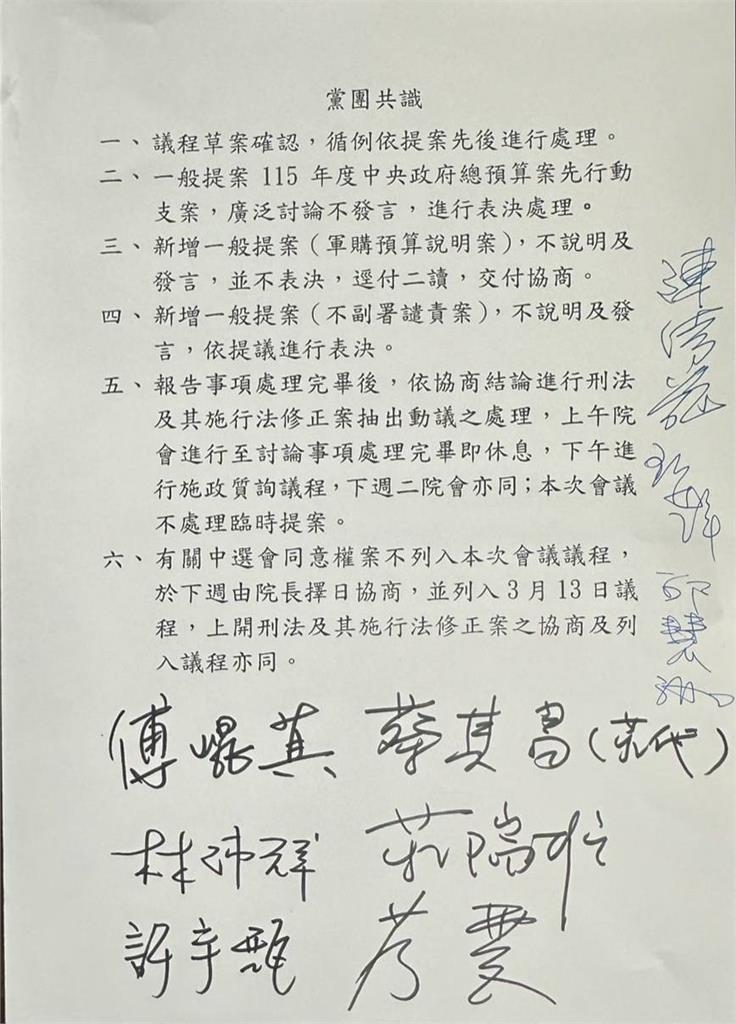 黨團共識
一、議程草案確認，循例依提案先後進行處理。
二、一般提案 115 年度中央政府總預算案先行動
支案，廣泛討論不發言，進行表決處理。
三、新增一般提案（軍購預算說明案），不說明及
發言，並不表決，逕付二讀，交付協商。
四、新增一般提案（不副署譴責案），不說明及發
言，依提議進行表決。
五、報告事項處理完畢後，依協商結論進行刑法
及其施行法修正案抽出動議之處理，上午院
會進行至討論事項處理完畢即休息，下午進
行施政質詢議程，下週二院會亦同；本次會議
不處理臨時提案。
六、有關中選會同意權案不列入本次會議議程，
於下週由院長擇日協商，並列入 3 月 13 日議
程，上開刑法及其施行法修正案之協商及列
入議程亦同。
傅崐萁 蔡其昌（
林沛祥
許宇甄